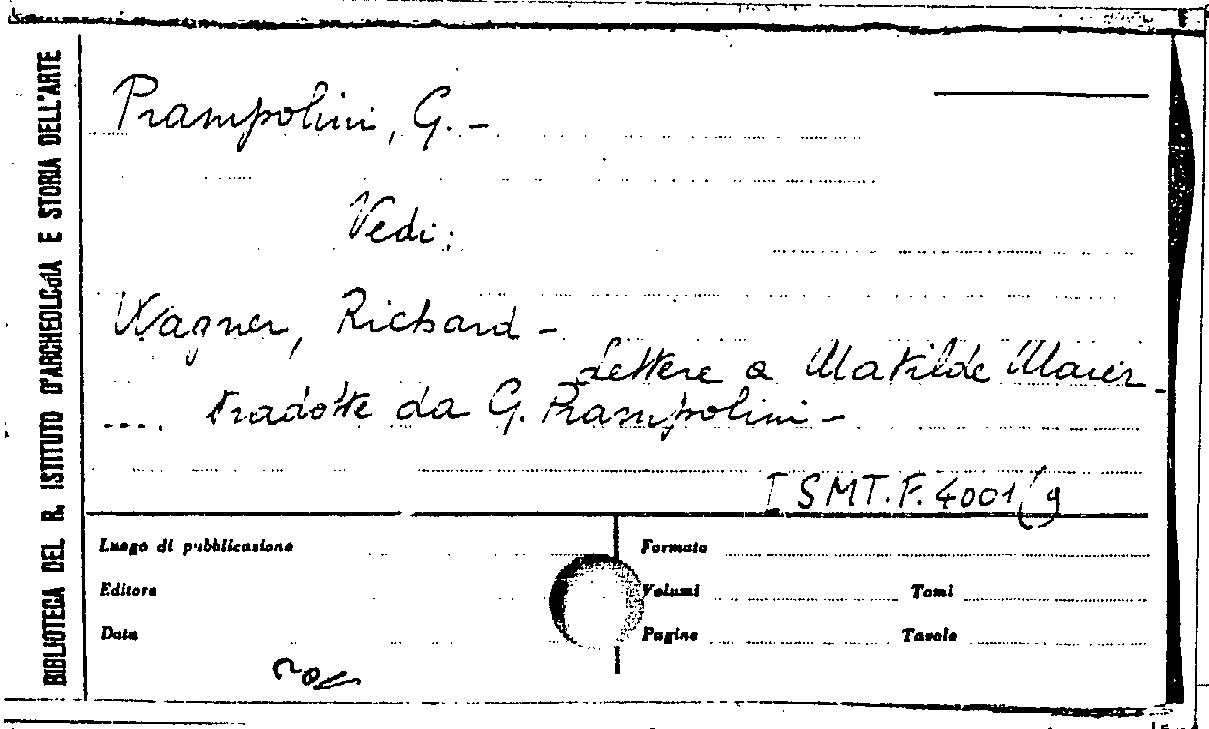 BIBLIOTECA DEL R. ISTITUTO D'ARCHEOLOGIA E STORIA DELL'ARTE
Prampolini, G. -
Vedi:
Wagner, Richard -
Lettere a Matilde Maier -
.... tradotte da G. Prampolini -
I SMT. F. 4001/9
Luogo di pubblicazione
Formato
Editore
Volumi
Tomi
Data
Pagine
Tavole